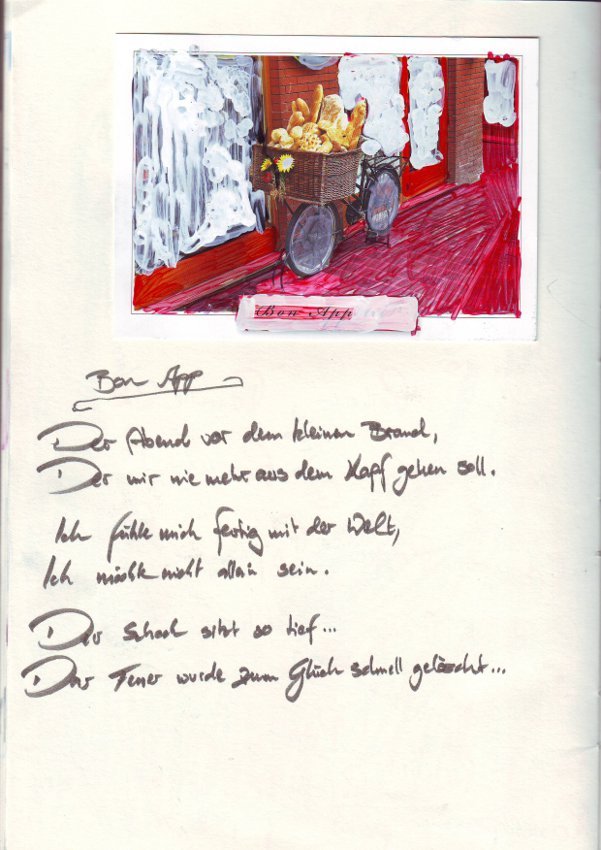 Bon App
Bon App
Der Abend vor dem kleinen Brand,
Der mir nie mehr aus dem Kopf gehen soll.
Ich fühle mich fertig mit der Welt,
Ich möchte nicht allein sein.
Der Schock sitzt so tief...
Das Feuer wurde zum Glück schnell gelöscht...